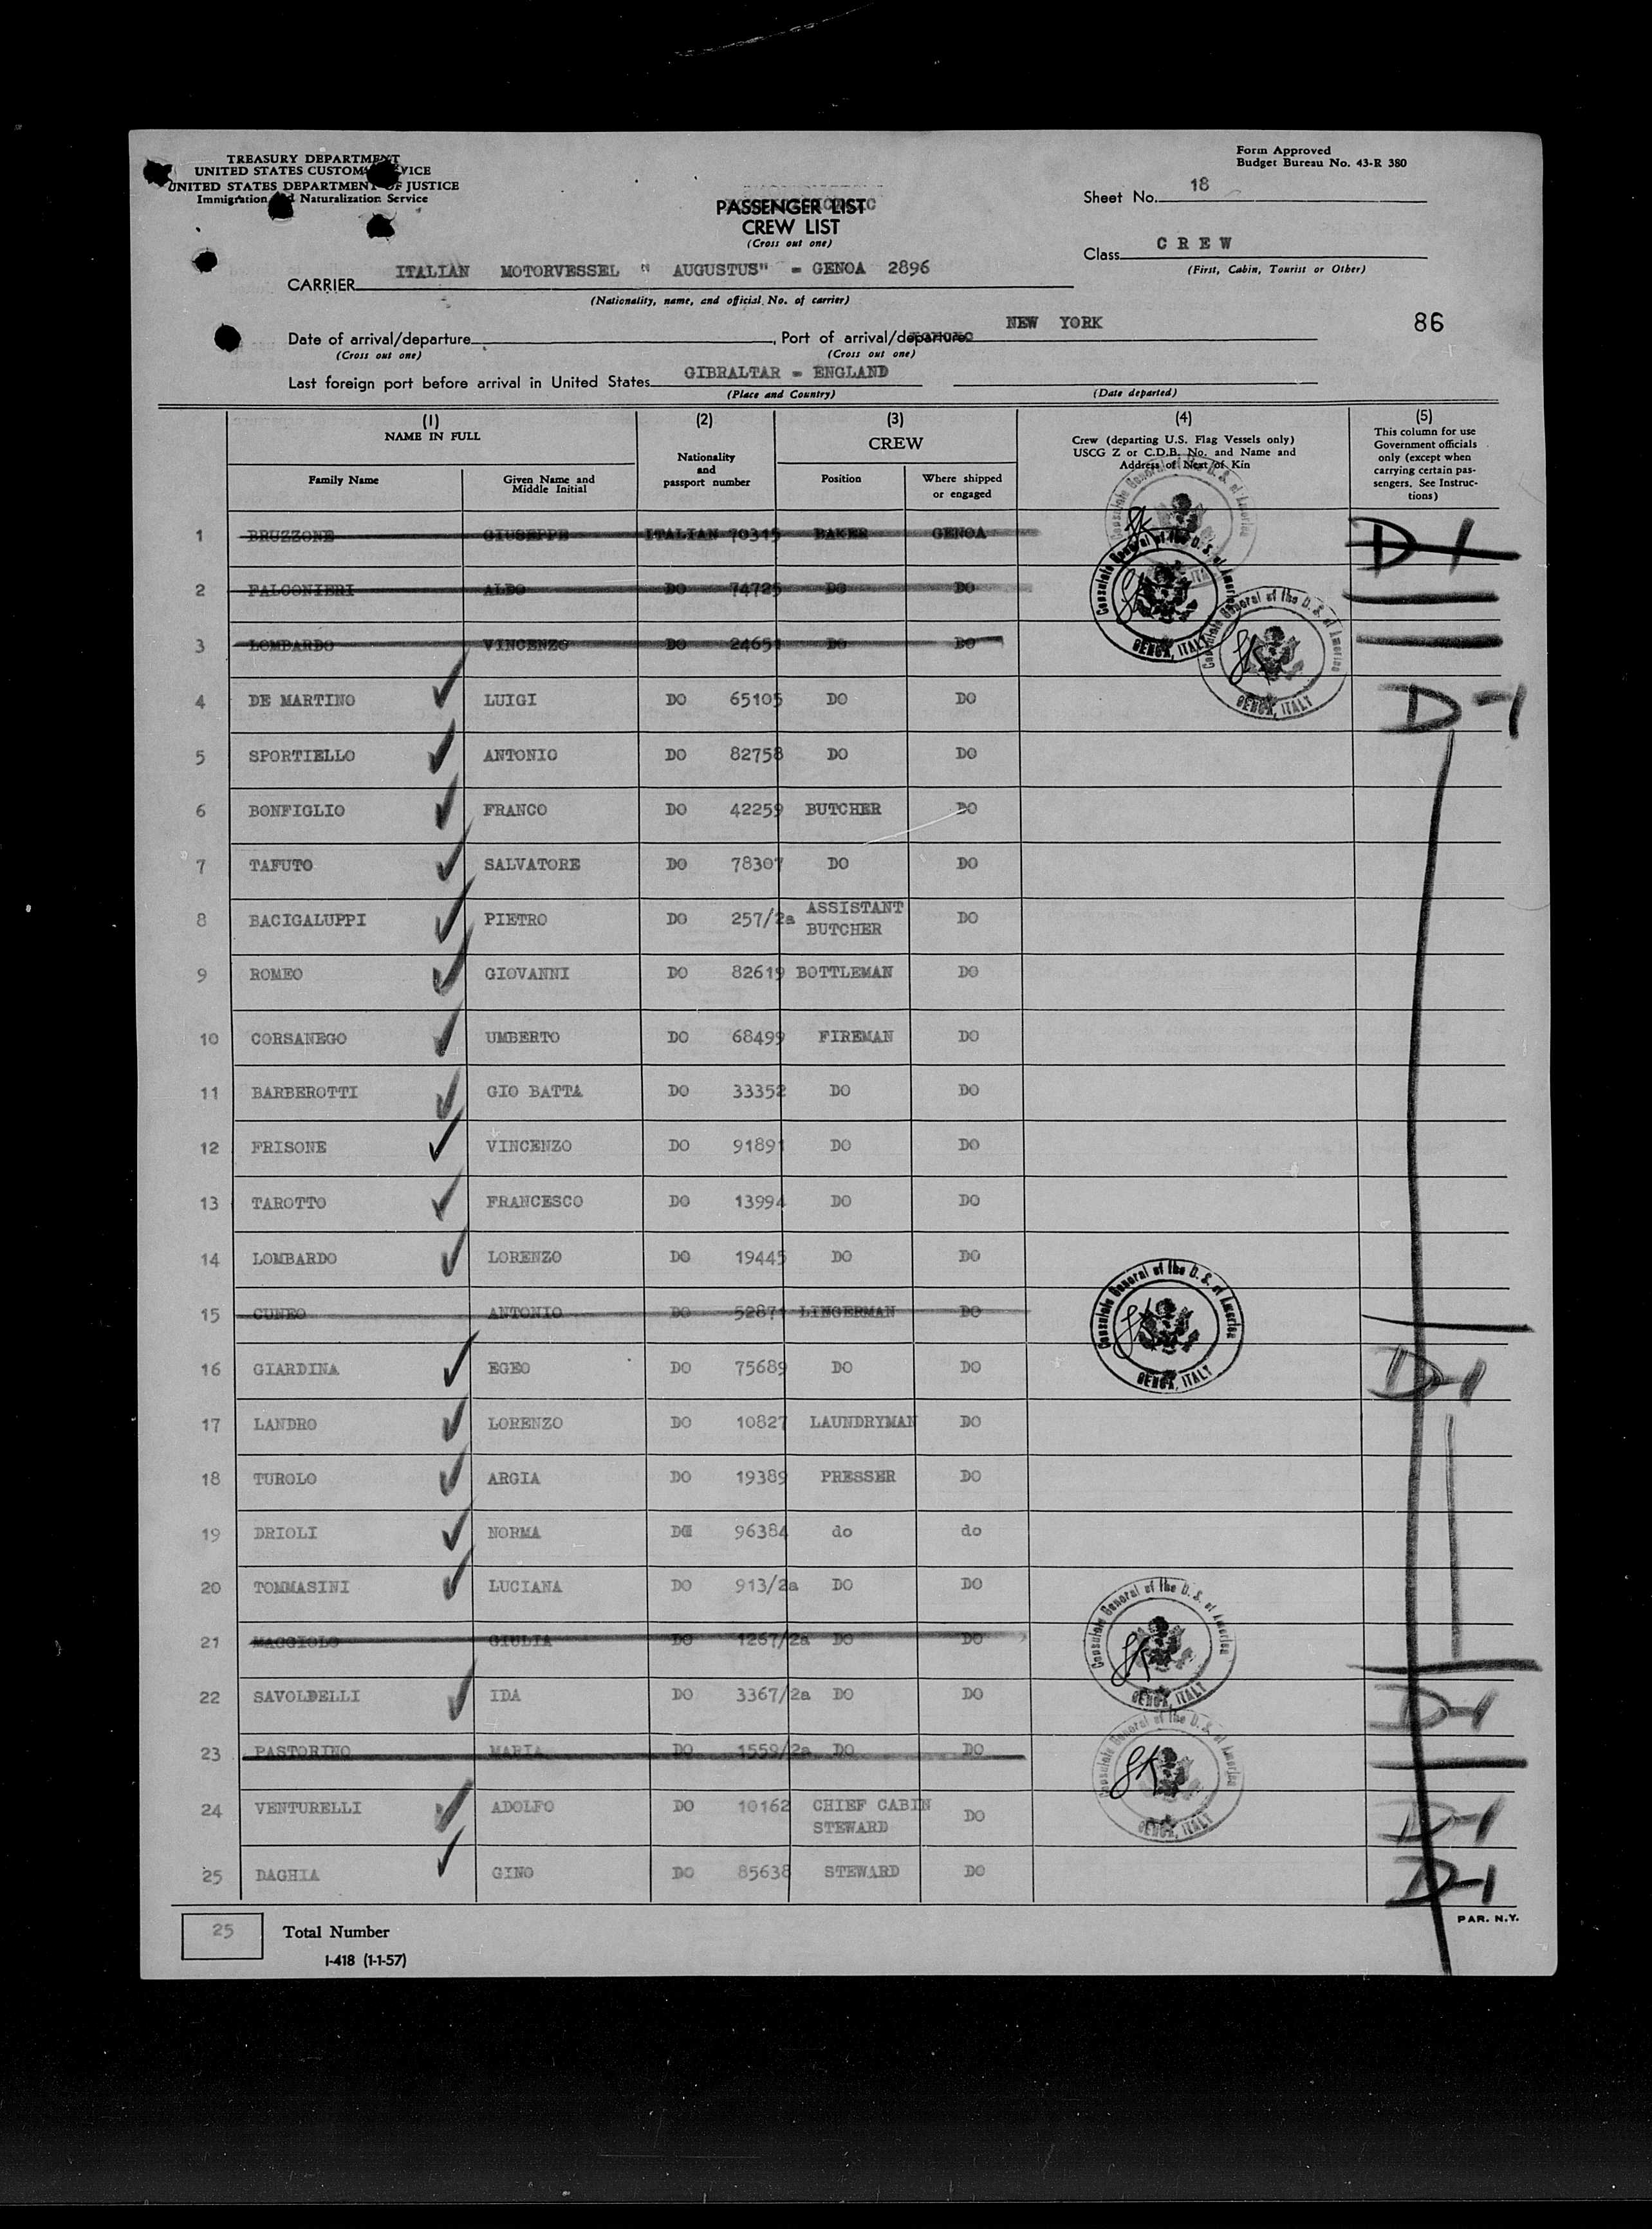 TREASURY DEPARTMENT
UNITED STATES CUSTOMS SERVICE
UNITED STATES DEPARTMENT OF JUSTICE
Immigration and Naturalization Service
Form Approved
Budget Bureau No. 43-R 380
Sheet No. 18
PASSENGER LIST
CREW LIST
(Cross out one)
Class CREW
(First, Cabin, Tourist or Other)
CARRIER ITALIAN MOTORVESSEL " AUGUSTUS" - GENOA 2896
(Nationality, name, and official No. of carrier)
86
Date of arrival/departure , Port of arrival/departure NEW YORK
(Cross out one) (Cross out one)
Last foreign port before arrival in United States GIBRALTAR - ENGLAND
(Place and Country) (Date departed)
(1) (2) (3) (4) (5)
NAME IN FULL
Family Name
Given Name and Middle Initial
Nationality and passport number
CREW
Position
Where shipped or engaged
Crew (departing U.S. Flag Vessels only) USCG Z or C.D.B. No. and Name and Address of Next of Kin
This column for use Government officials only (except when carrying certain passengers. See Instructions)
1 BRUZZONE GIUSEPPE ITALIAN 70315 BAKER GENOA D-1
2 FALCONIERI ALDO DO 74725 DO DO
3 LOMBARDO VINCENZO DO 24651 DO DO
4 DE MARTINO LUIGI DO 65105 DO DO D-1
5 SPORTIELLO ANTONIO DO 82758 DO DO
6 BONFIGLIO FRANCO DO 42259 BUTCHER DO
7 TAFUTO SALVATORE DO 78307 DO DO
8 BACIGALUPPI PIETRO DO 257/2a ASSISTANT BUTCHER DO
9 ROMEO GIOVANNI DO 82619 BOTTLEMAN DO
10 CORSANEGO UMBERTO DO 68499 FIREMAN DO
11 BARBEROTTI GIO BATTA DO 33352 DO DO
12 FRISONE VINCENZO DO 91891 DO DO
13 TAROTTO FRANCESCO DO 13994 DO DO
14 LOMBARDO LORENZO DO 19445 DO DO
15 CUNEO ANTONIO DO 52871 LINGERMAN DO
16 GIARDINA EGEO DO 75689 DO DO D-1
17 LANDRO LORENZO DO 10827 LAUNDRYMAN DO
18 TUROLO ARGIA DO 19389 PRESSER DO
19 DRIOLI NORMA DO 96384 do do
20 TOMMASINI LUCIANA DO 913/2a DO DO
21 MAGGIOLO GIULIA DO 1267/2a DO DO
22 SAVOLDELLI IDA DO 3367/2a DO DO D-1
23 PASTORINO MARIA DO 1559/2a DO DO
24 VENTURELLI ADOLFO DO 10162 CHIEF CABIN STEWARD DO D-1
25 DAGHIA GINO DO 85638 STEWARD DO D-1
Consulate General of the U. S. of America
GENOA, ITALY
Consulate General of the U. S. of America
GENOA, ITALY
Consulate General of the U. S. of America
GENOA, ITALY
Consulate General of the U. S. of America
GENOA, ITALY
Consulate General of the U. S. of America
GENOA, ITALY
Consulate General of the U. S. of America
GENOA, ITALY
25 Total Number
I-418 (1-1-57)
PAR. N.Y.